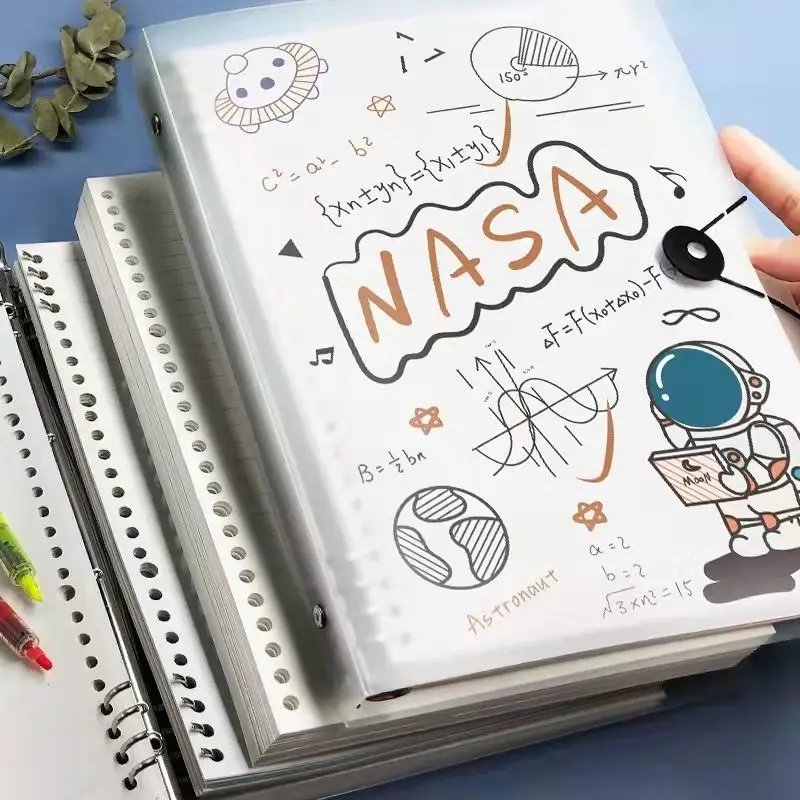 150°
πr²
c² = a² - b²
{xn±yn}={x₁±y₁}
NASA
ΔF=F(x₀+Δx₀)-F(x
B = ½bn
MooN
a = 2
b = 2
√3×n² = 15
Astronaut